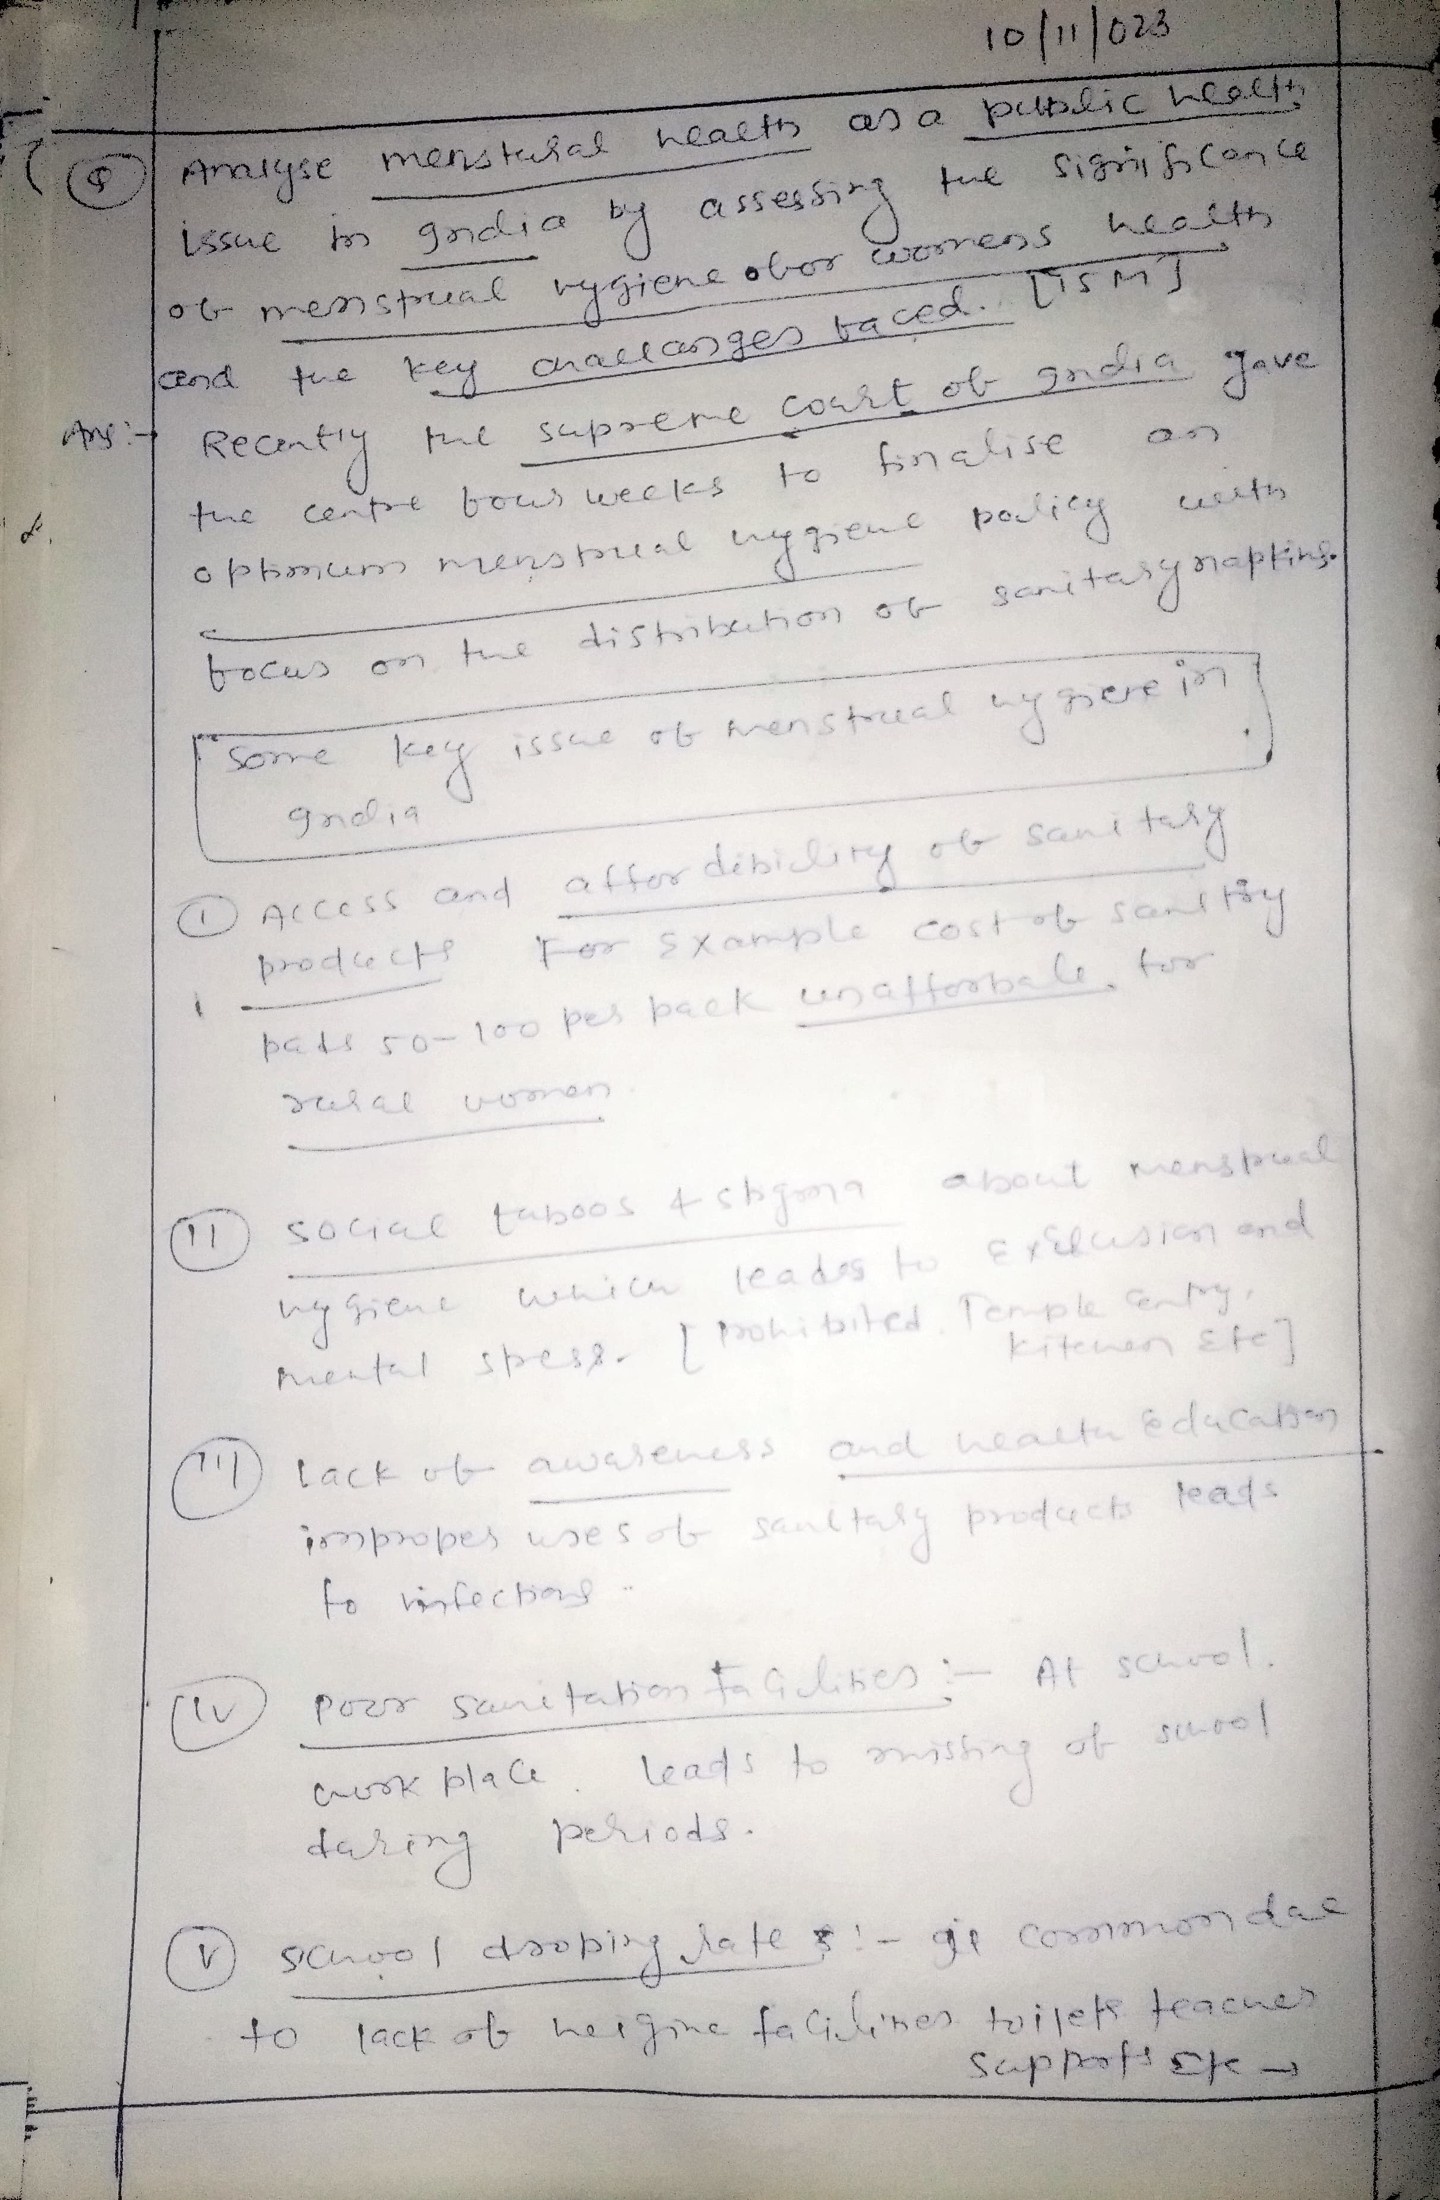 10/11/023
Q Analyse menstural health as a public health
issue in India by assessing the significance
of menstrual hygiene for womens health
and the key challanges faced. [15M]
Ans:- Recently the supreme court of India gave
the centre four weeks to finalise an
optimum menstrual hygiene policy with
focus on the distribution of sanitary napkins.
Some key issue of menstrual hygiene in
India
(I) Access and affordibility of sanitary
products For Example cost of sanitry
pads 50-100 per pack unafforbale for
rural women
(II) social taboos & stigma about menstrual
hygiene which leades to Exclusion and
mental stress. [Prohibited Temple entry,
kitchen Etc]
(III) Lack of awareness and health Education
improper uses of sanitary products leads
to infections.
(IV) Poor sanitation facilities:- At school.
work place. leads to missing of school
during periods.
(V) school droping rates:- It common due
to lack of heigine facilities toilets teacher
supports Etc →